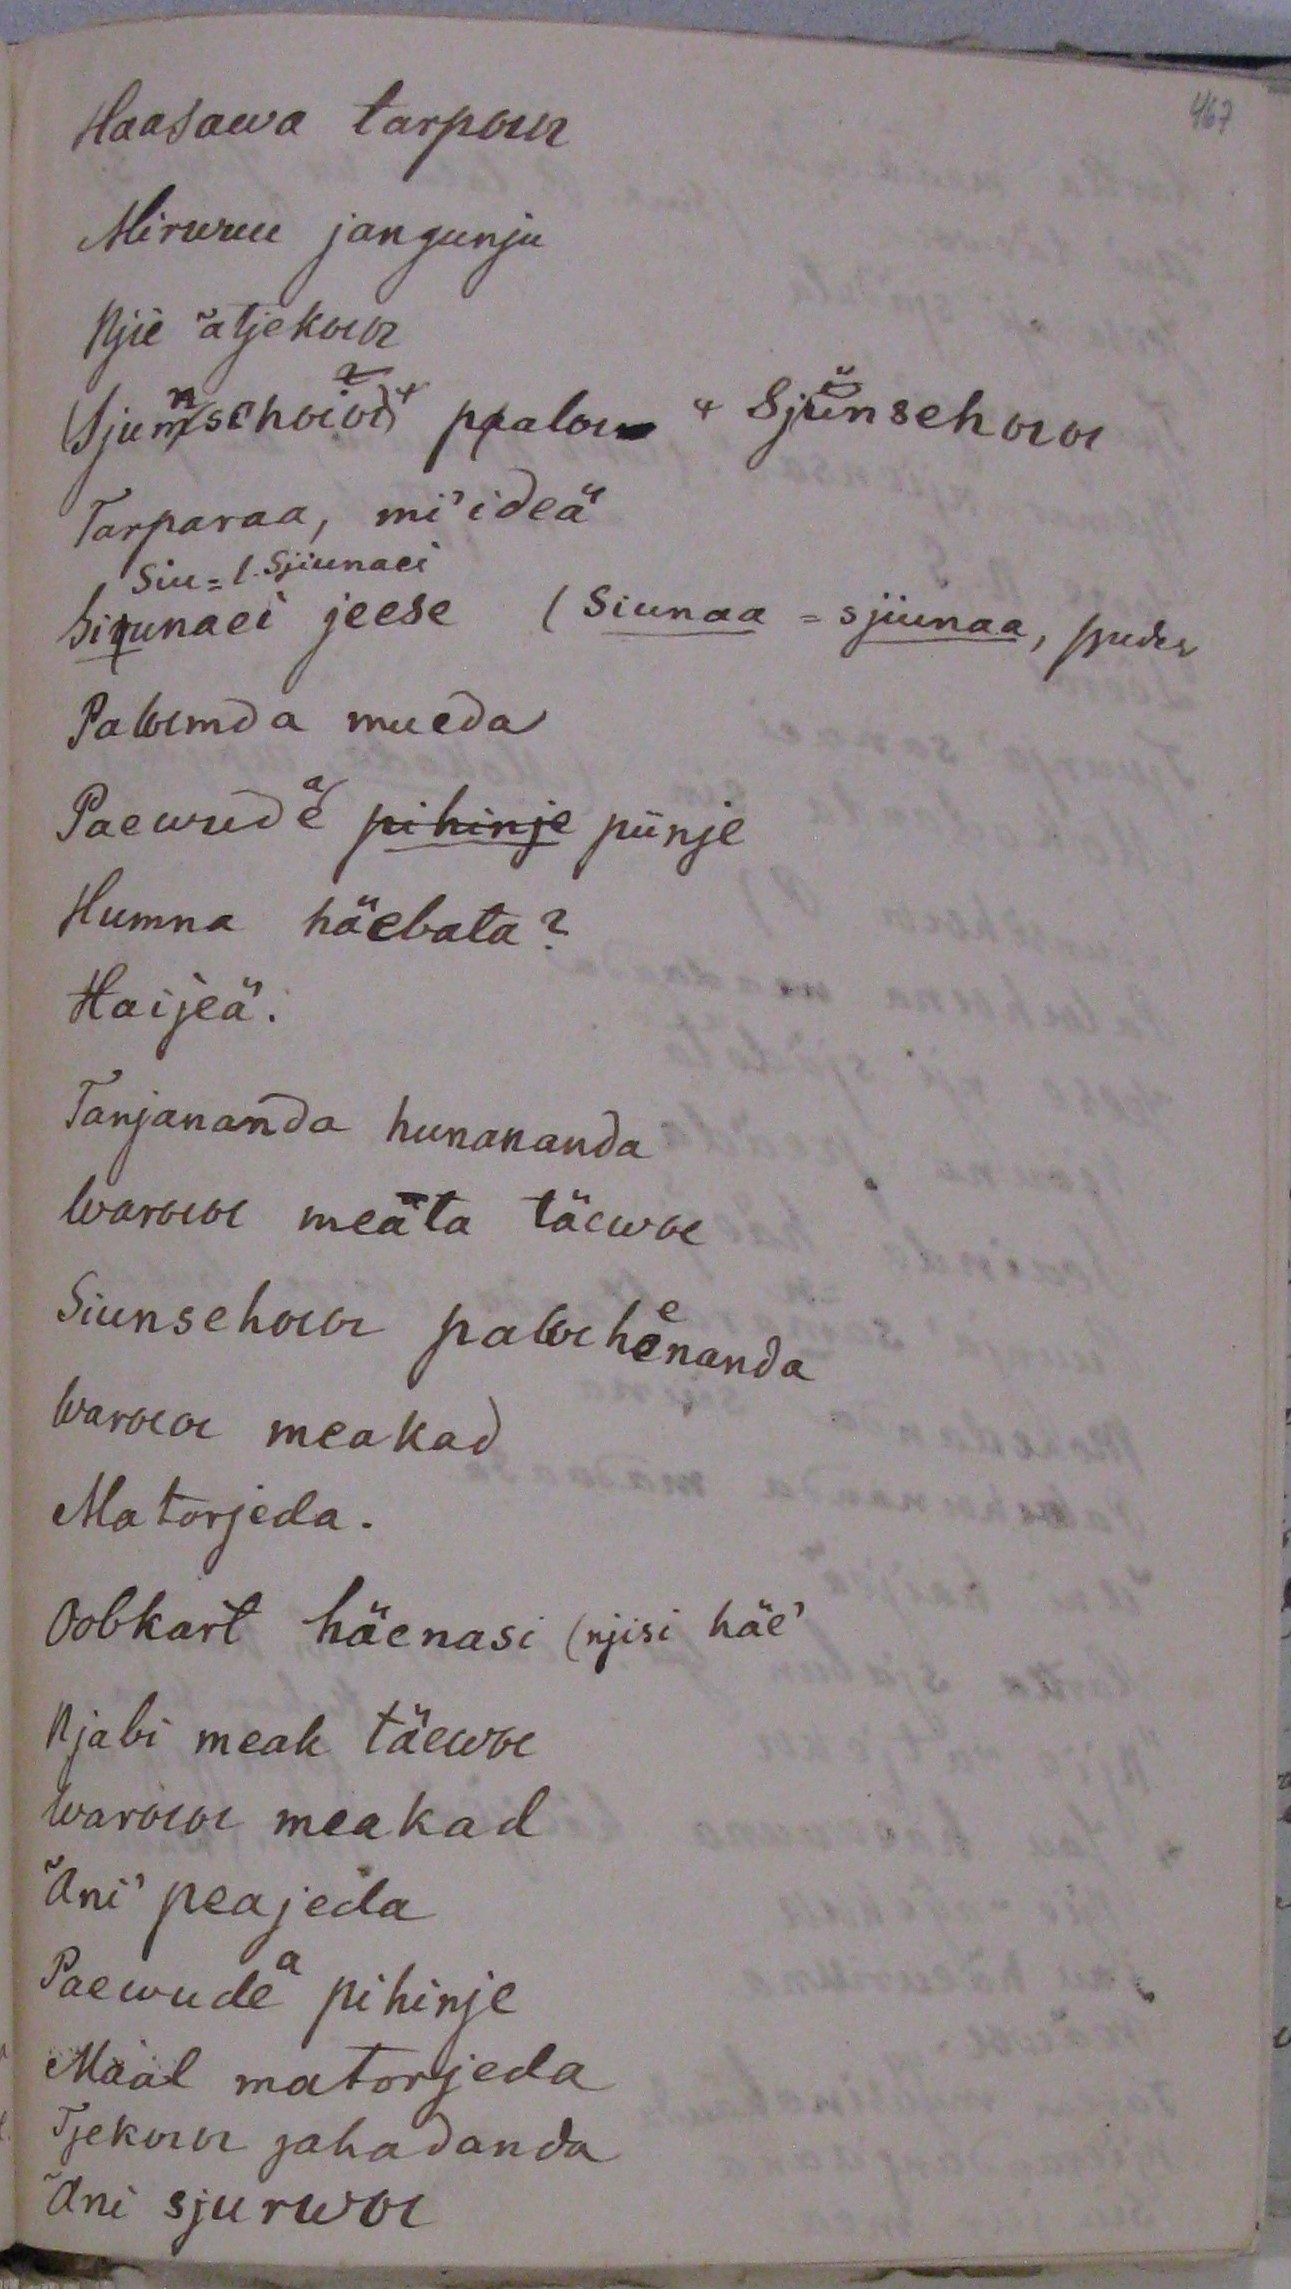 467
Haasawa tarpoιoι
Mirwuu jangunju
Njie ätjekoιoι
(Sjunsehoιoι+ paloι + Sjünsehoιoι
Tarparaa, mi'ideä
Siu = l. Sjiunaei
Siunaei jeese (Siunaa = sjiunaa,
Paloιmda mueda
Paewudä pihinje piinje
Humna häebata?
Haijeä.
Tanjananda hunananda
Waroιoι meäta täewoι
Siunsehoιoι paloιhenanda
Waroιoι meakad
Matorjeda.
Oobkart häenasi (njisi häe'
Njabi meak täewoι
Waroιoι meakad
Äni' peajeda
Paewudea pihinje
Määl matorjeda
Tjekoιoι jahadanda
Äni sjurwoι